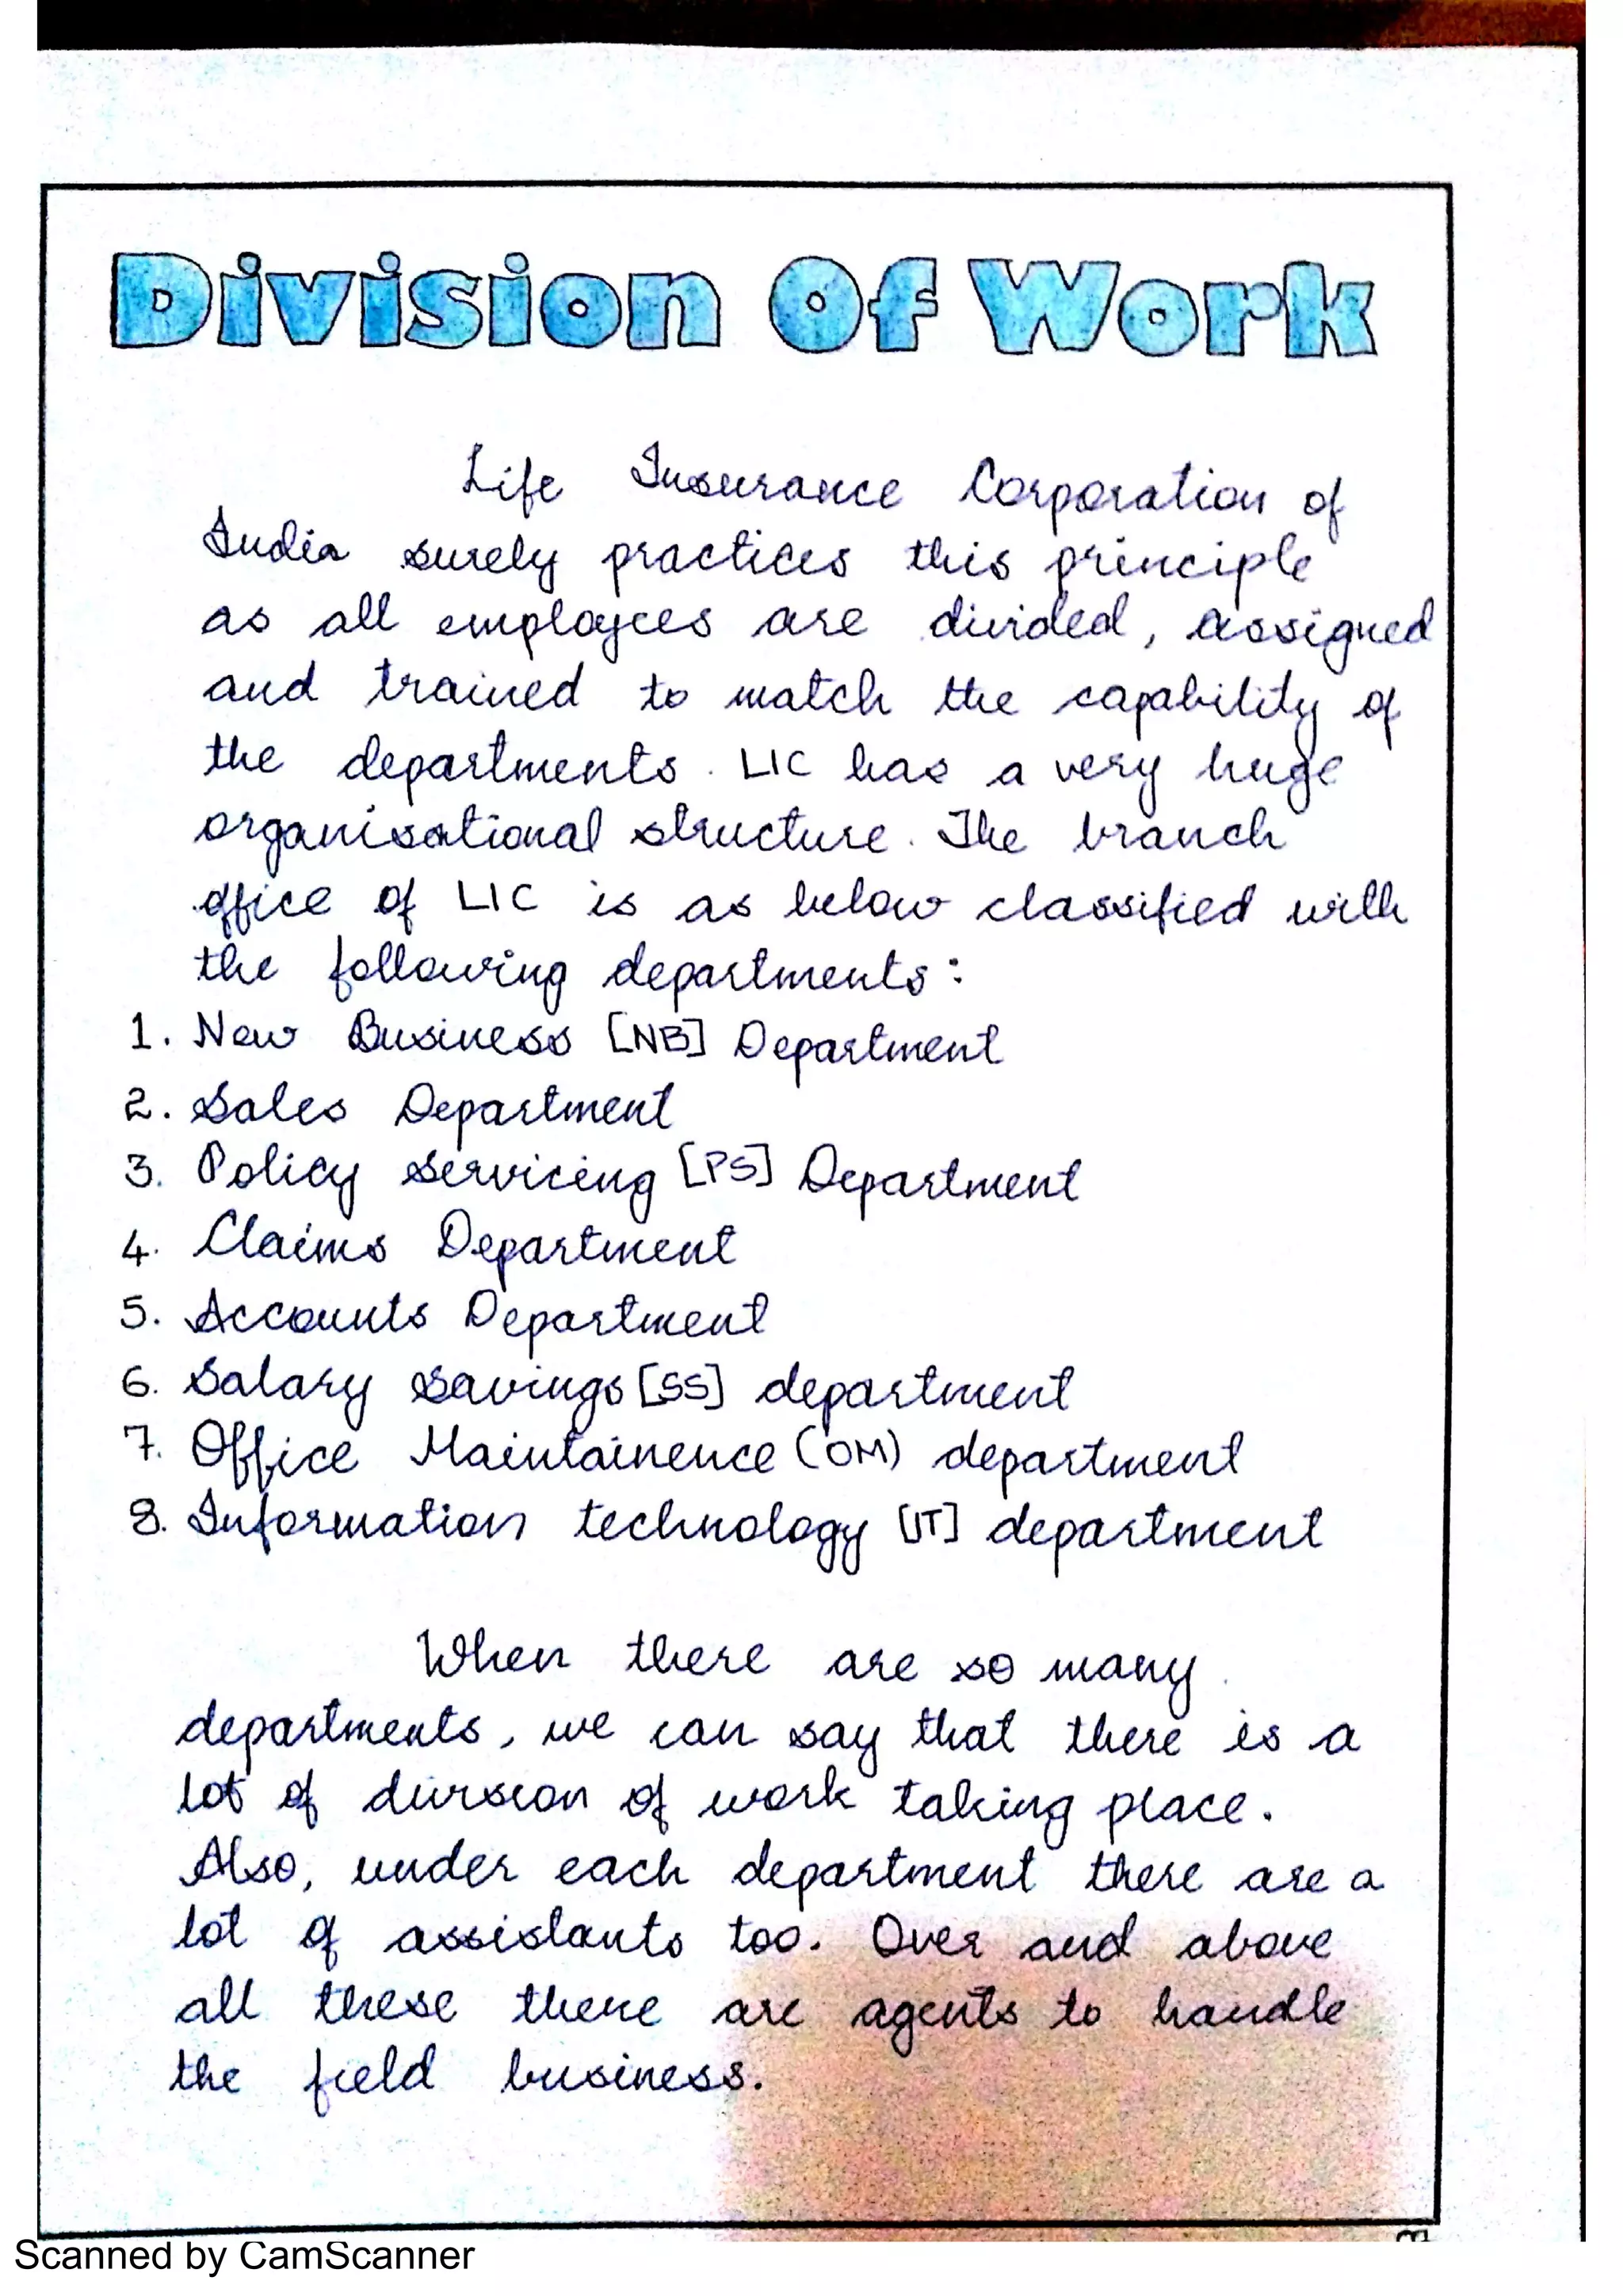 Division Of Work
Life Insurance Corporation of
India surely practices this principle
as all employees are divided, assigned
and trained to match the capability of
the departments. LIC has a very huge
organisational structure. The branch
office of LIC is as below classified with
the following departments:
1. New Business [NB] Department
2. Sales Department
3. Policy Servicing [PS] Department
4. Claims Department
5. Accounts Department
6. Salary Savings [SS] department
7. Office Maintainence (OM) department
8. Information technology [IT] department
When there are so many
departments, we can say that there is a
lot of division of work taking place.
Also, under each department there are a
lot of assistants too. Over and above
all these there are agents to handle
the field business.
Scanned by CamScanner